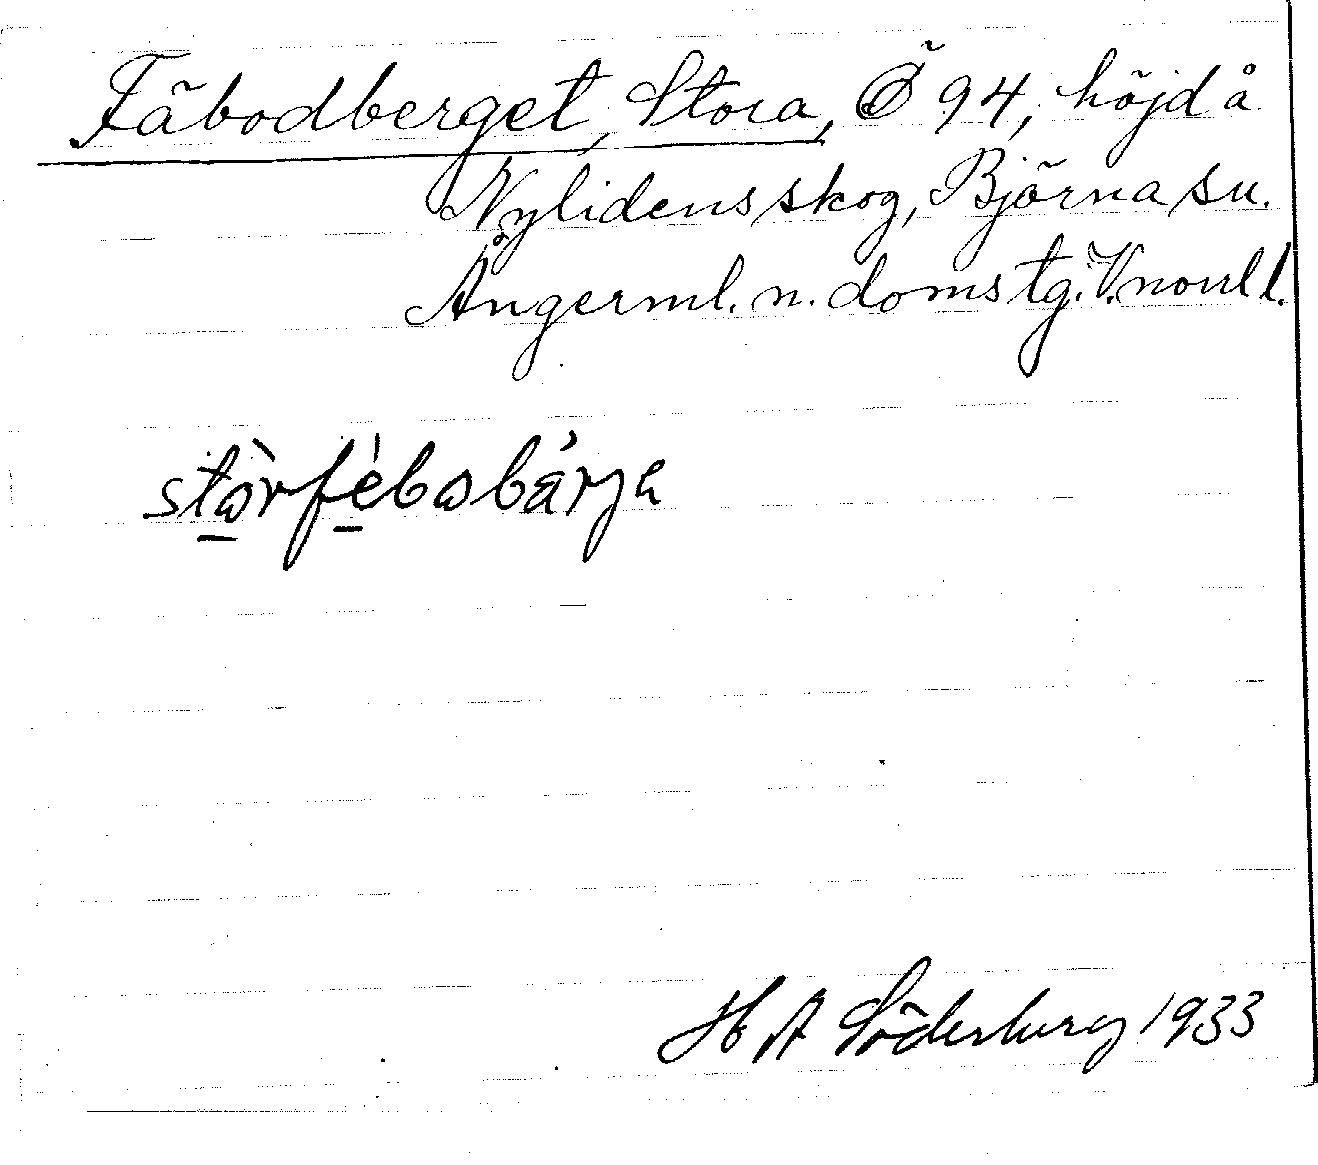 Fäbodberget, Stora, Ö 94, höjd å
Nylidens skog, Björna sn.
Ångerml. n. domstg. V.norrl l.
stωrfèbωbärja
H A Söderberg 1933